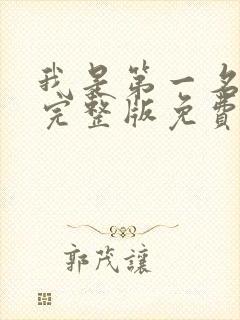 我是第一名
完整版免费
郭茂讓